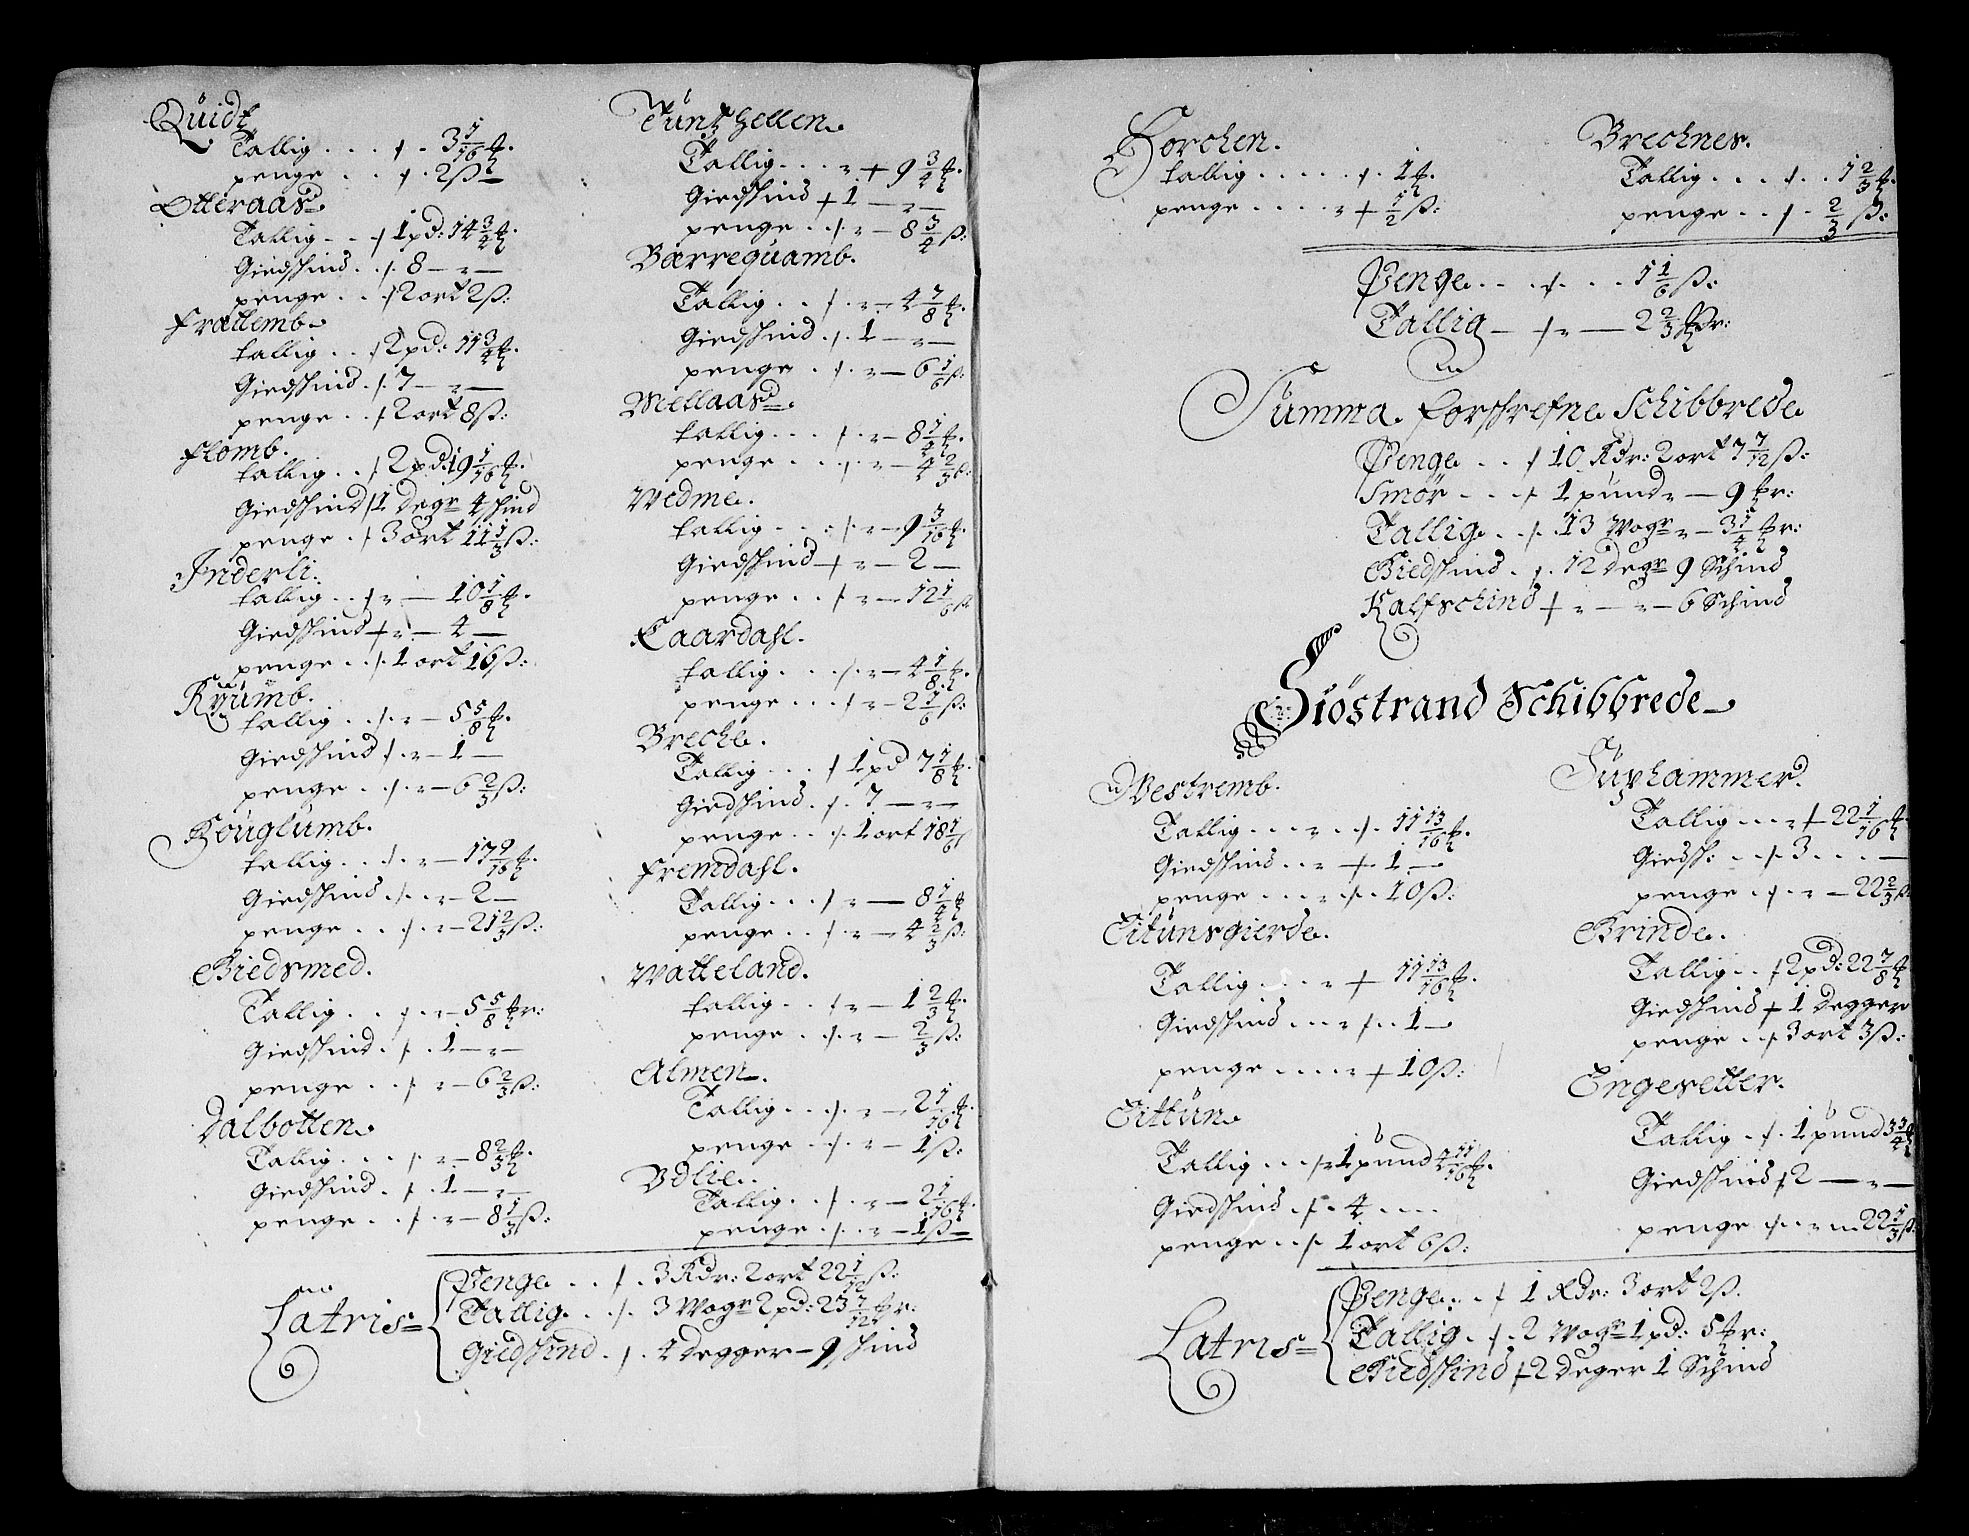 Qüidt
Tallig . . . ./. . 3 1/16 ℔.
penge . . . ./. . 2 ß
Otteraasd
Tallig . . ./ 1 pd: 14 3/4 ℔.
Giedshind . ./. 8 — " —
penge . . ./ 2 ort 2 ß:
Frattemb
tallig . . ./ 2 pd: 11 3/4 ℔.
Giedshind ./. 7 — " —
penge . . ./ 2 ort 8 ß:
Flomb.
tallig . . ./ 2 pd: 19 1/16 ℔.
Giedshind / 1 degr 4 shind
penge . ./ 3 ort 11 1/3 ß:
Inderli.
tallig . . ./ " — 10 1/8 ℔.
Giedshind / " — 4 —
penge . . ./. 1 ort 16 ß:
Kyümb.
tallig . . ./. " — 5 5/8 ℔.
Giedshind ./. " — 1 —
penge . . ./. " — 6 2/3 ß:
Kouglumb.
tallig . . ./. " — 17 9/16 ℔.
Giedshind ./. . " — 2 —
penge . . ./. " — 21 2/3 ß:
Giedsmed.
Tallig . . ./. " — 5 5/8 ℔r:
Giedshind ./. . 1 — " —
penge . . ./. " — 6 2/3 ß:
Dalbotten
Tallig . . . ./. " — 8 2/3 ℔.
Giedshind . ./. 1 — " —
penge . . ./. " — 8 1/3 ß:
Tüntzhellen
Tallig . . . . " / 9 3/4 ℔.
Giedshind / 1 — " —
penge . ./. " — 8 3/4 ß:
Barrequamb.
Tallig . . ./. " — 4 7/8 ℔.
Giedshind ./. 1 — " —
penge . . ./. " — 6 1/6 ß:
Mellaasd
tallig . . . ./. " — 8 1/4 ℔.
penge . . . ./. " — 4 2/3 ß.
Vedme.
tallig . . . ./. " — 9 3/16 ℔.
Giedshind / " — 2 —
penge . . ./. " — 12 1/6 ß
Caardahl.
tallig . . . ./. " — 4 1/8 ℔.
penge . . . ./ " — 2 1/6 ß:
Breche.
Tallig . . . ./ 1 pd 7 1/8 ℔
Giedshind ./. 7 — " —
penge . . ./. 1 ort 18 1/6 ß
Fremdahl.
Tallig . . . ./ " — 8 1/4 ℔
penge . . ./. " — 4 2/3 ß:
Vatteland.
tallig . . ./ " — 1 2/3 ℔.
penge . . ./. " — 2/3 ß:
Almen.
Tallig . . ./. " — 2 1/16 ℔.
penge . ./. " — 1 ß:
Vdlie.
Tallig . . ./. " — 2 1/16 ℔.
penge . ./. " — 1 ß
Latris
Penge . . ./. . 3 Rdr: 2 ort 22 1/12 ß:
Tallig . . ./. 3 Wogr 2 pd: 23 7/12 ℔r:
Giedshind . ./. 4 degger — 9 shind
Horchen.
tallig . . . . . ./. . 1 ℔.
penge . . . . " / 1/2 ß:
Brechnes.
Tallig . . . ./. . 1 2/3 ℔.
penge . . ./. 2/3 ß:
Penge . . . ./. . . . 1 1/6 ß:
Tallig — / " — 2 2/3 ℔r:
Summa forshrefne Schibbrede
Penge . . ./ 10 Rdr: 2 ort 7 7/12 ß:
Smør . . . ./. 1 pund " — 9 ℔r:
Tallig . ./. . 13 Wogr " — 3 1/4 ℔r:
Giedshind ./. 12 degr 9 Schind
Kalfschind / " — " — 6 Schind
Siöstrand Schibbrede
Vestremb.
Tallig . . . " . ./. 11 13/16 ℔.
Giedshind . . " / 1 —
penge . . . . " ./. 10 ß:
Titünsgierde.
Tallig . . . . " / 11 13/16 ℔.
Giedshind . . . " ./. . 1 —
penge . . . . . " / 10 ß:
Tittün
Tallig . . ./. 1 pund 4 11/16 ℔.
Giedshind ./. . 4 . . . .
penge . . ./. 1 ort 6 ß:
Süphammer.
Tallig . . . " / 22 1/16 ℔.
Giedsh: . . ./. 3 . . . —
penge ./. . " — 22 2/3 ß
Brinde.
Tallig . . ./ 2 pd: 22 7/8 ℔
Giedshind / 1 degger
penge . ./. 3 ort 3 ß:
Engesetter.
Tallig . ./. 1 pund 3 3/4 ℔
Giedshind / 2 — " —
penge ./. . " . . 22 1/3 ß:
Latris
Penge . . . ./ 1 Rdr: 3 ort 2 ß.
Tallig . ./. 2 Wogr 1 pd: 5 ℔r:
Giedshind / 2 deger 1 Schind